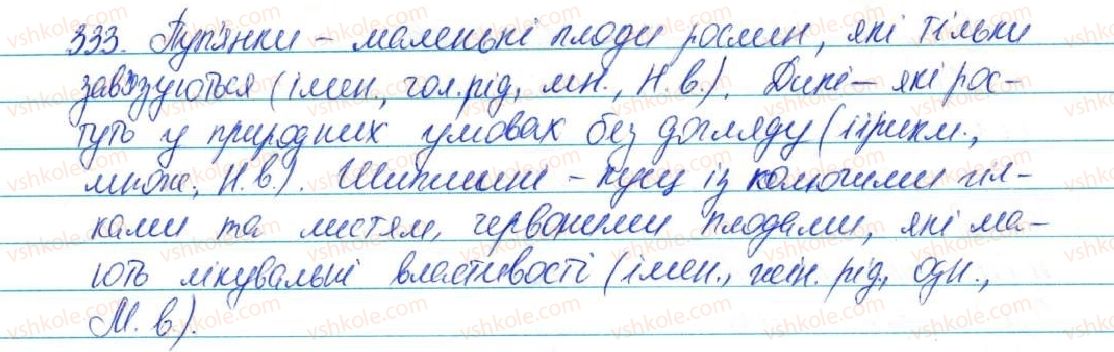 333. Пуп'янки – маленькі плоди рослин, які тільки
зав'язуються (імен., чол. рід, мн., Н. в.). Дикі – які рос-
туть у природних умовах без догляду (прикм.,
множ., Н. в.). Шипшині – кущ із колючими гіл-
ками та листям, червоними плодами, які ма-
ють лікувальні властивості (імен., жін. рід, одн.,
М. в.).